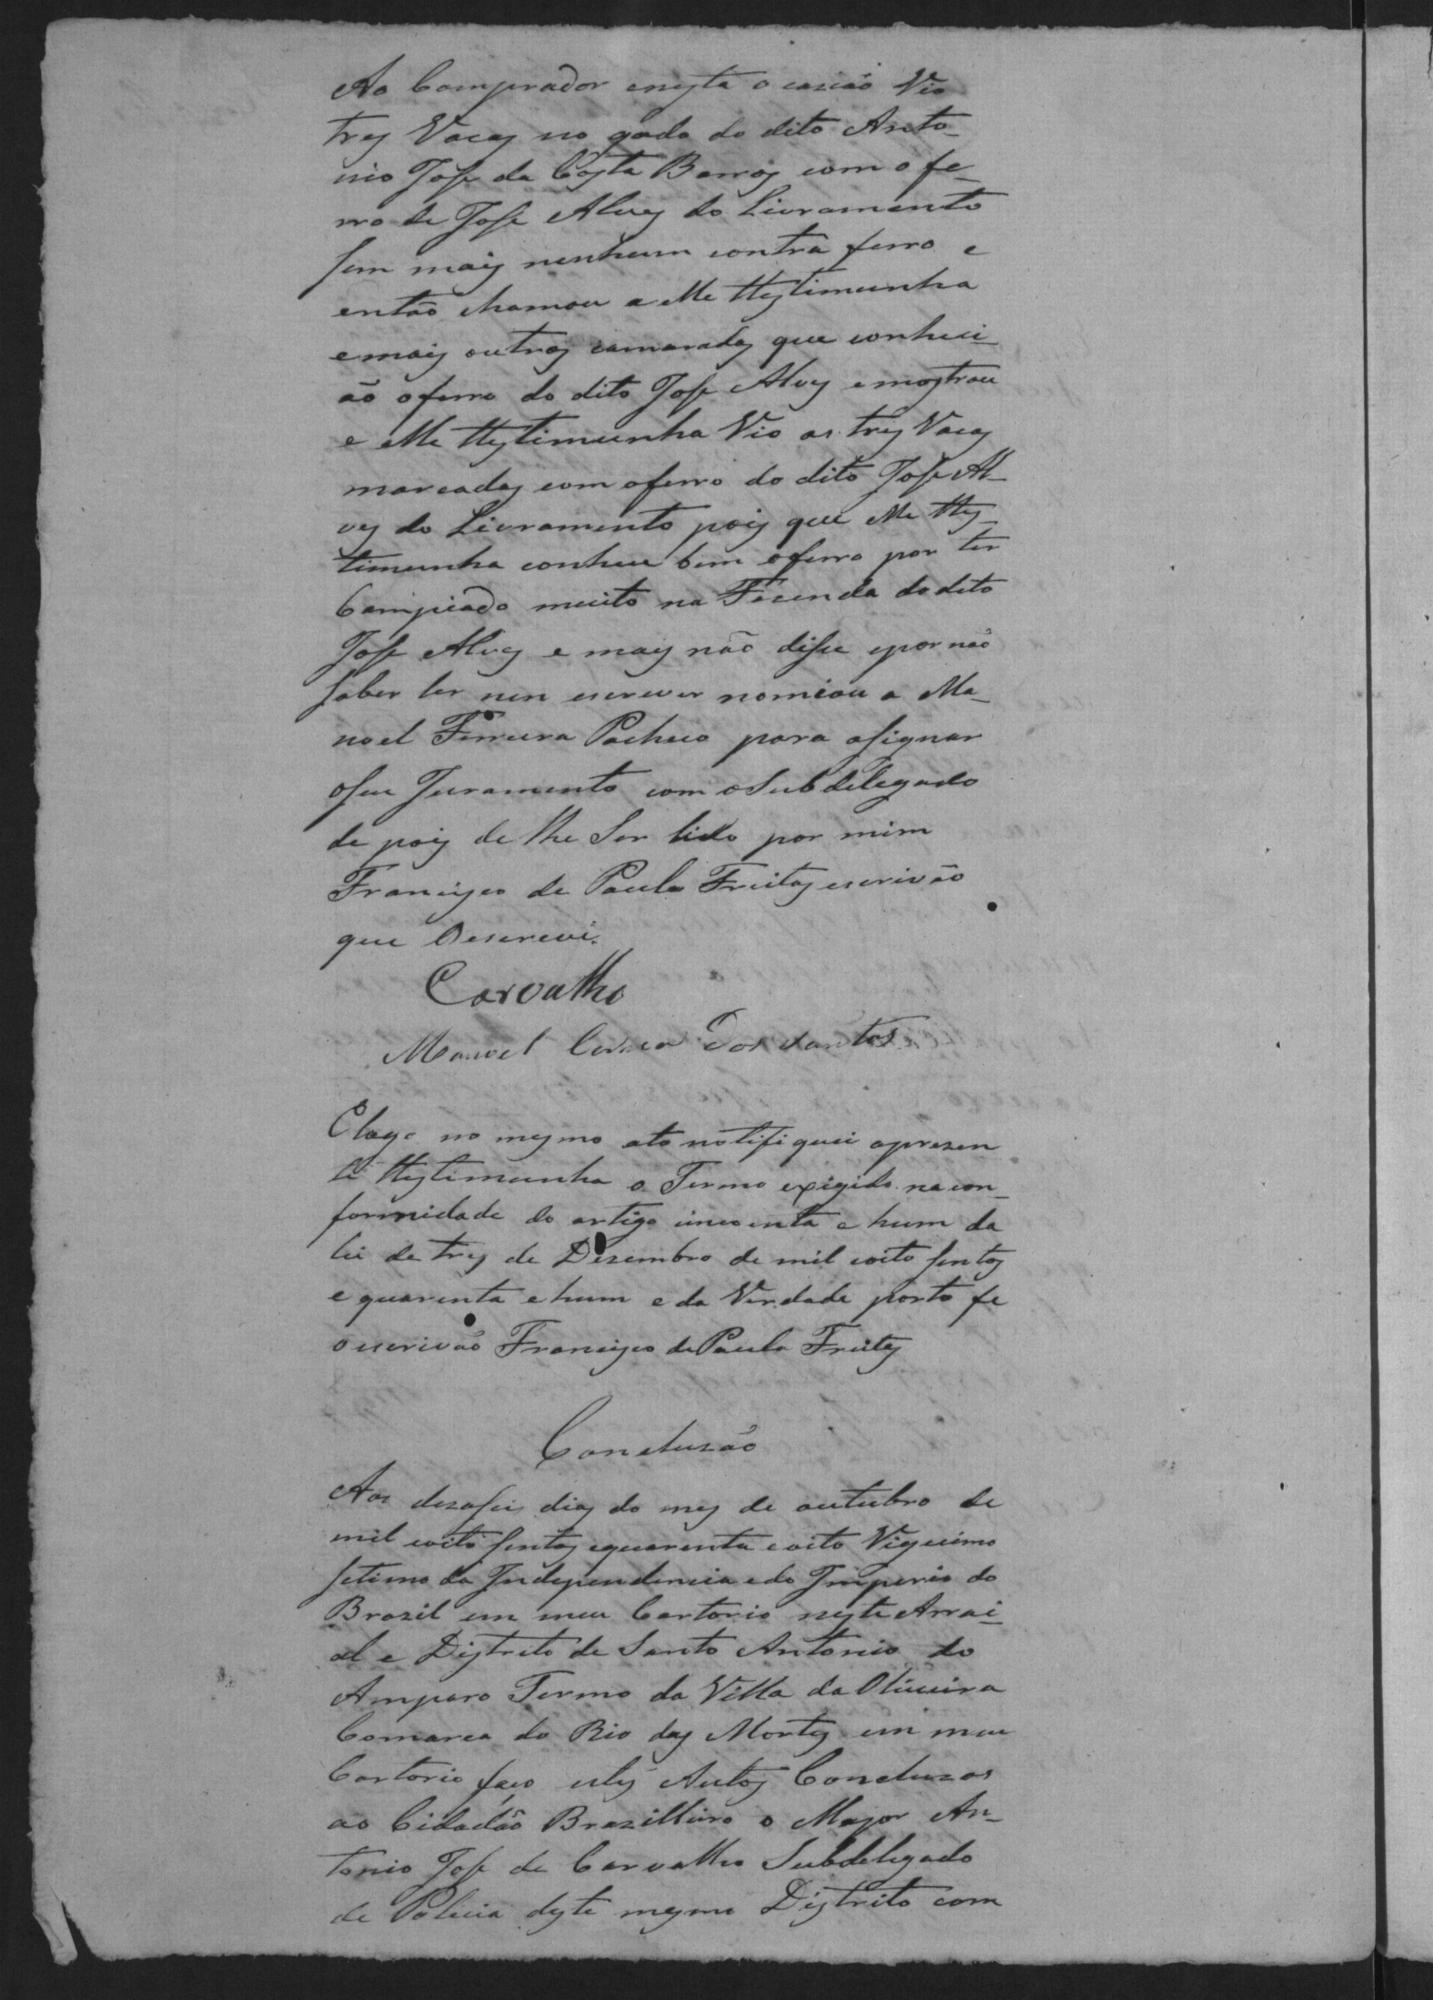 Ao Comprador enesta ocazião Vio
trez Vacas no gado do dito Anto-
nio Jose da Costa Barros com o fe-
rro de Jose Alves do Livramento
sem mais nenhum contra ferro e
então chamou a elle testimunha
e mais outros camaradas que conheci-
ão o ferro do dito Jose Alves e mostrou
e elle testimunha Vio as trez Vacas
marcadas com o ferro do dito Jose Al-
ves do Livramento pois que elle tes-
timunha conhece bem o ferro por ter
Campiado muito na Fazenda do dito
Jose Alves e mais não disse e por não
saber ler nen escrever nomiou a Ma-
noel Ferreira Pacheco para asignar
o seu Juramento com o Subdelegado
de pois de lhe ser lido por mim
Francisco de Paula Freitas escrivão
que Oescrevi.
Carvalho
Manoel Dos Santos
E logo no mesmo ato notifiquei apresen
te testimunha o Termo exigido na con-
formidade do artigo cincoenta e hum da
lei de trez de Dezembro de mil oito sentos
e quarenta e hum e da Verdade porto fe
o escrivão Francisco de Paula Freitas
Concluzão
Aos dezaseis dias do mes de outubro de
mil oito sentos e quarenta e oito Viguecimo
setimo da Independencia e do Imperio do
Brazil em meu Cartorio neste Arrai-
al e Distrito de Santo Antonio do
Amparo Termo da Villa da Oliveira
Comarca do Rio das Mortes em meu
Cartorio faço estes Autos Concluzos
ao Cidadão Brazilleiro o Major An-
tonio Jose de Carvalho Subdelegado
de Policia deste mesmo Distrito com